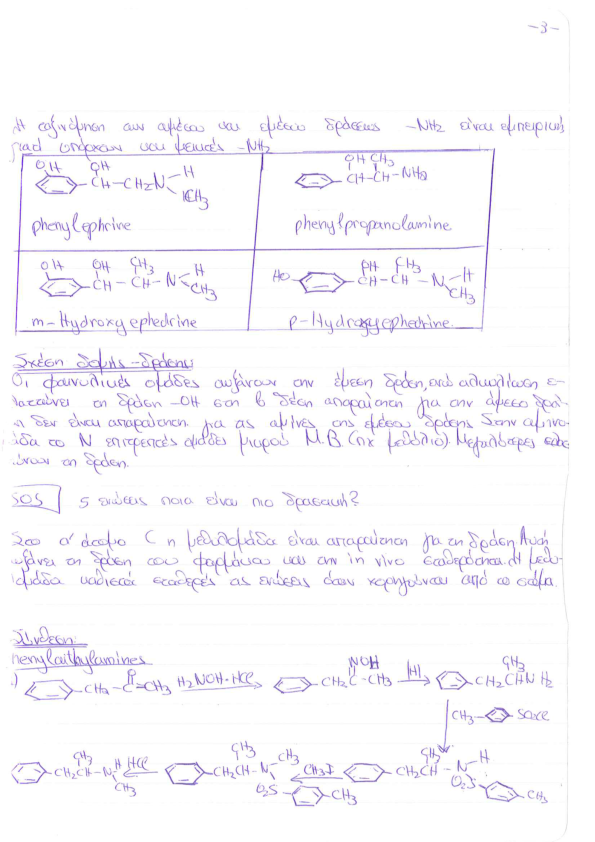 -3-
Η ταξινόμηση των αμέσου και εμέσου δράσεως -NH2 είναι εμπειρική
γιατί υπάρχουν και μεικτές -NH2
OH OH
CH-CH2N H
CH3
phenylephrine
OH CH3
CH-CH-NH2
phenylpropanolamine
OH OH CH3
CH-CH-N H
CH3
m-Hydroxyephedrine
HO OH CH3
CH-CH-N H
CH3
p-Hydroxyephedrine
Σχέση δομής-δράσης
Οι φαινολικές ομάδες αυξάνουν την άμεση δράση, ενώ αλκυλίωση ε-
λαττώνει τη δράση -OH στη β θέση απαραίτητη για την άμεσο δρά-
ση δεν είναι απαραίτητη για τις αμίνες της εμέσου δράσης Στην αμινο-
μάδα το N επιτρεπτές ομάδες μικρού Μ.Β (πχ μεθύλιο). Μεγαλύτερες
τη δράση
SOS 5 ενώσεις ποια είναι πιο δραστική?
Στο α' άτομο C η μεθυλομάδα είναι απαραίτητη για τη δράση. Αυτή
αυξάνει τη δράση του φαρμάκου και την in vivo σταθερότητα. Η μεθυ-
λομάδα καθιστά σταθερές τις ενώσεις όταν χορηγούνται από το στόμα.
Σύνθεση:
Phenylaithylamines
1) CH2-C-CH3 O H2NOH·HCl NOH CH2C-CH3 |H| CH3 CH2CHNH2
CH3- SO2Cl
CH3 CH2CH-N H CH3 HCl CH3 CH2CH-N CH3 O2S CH3 CH3I CH3 CH2CH-N H O2S CH3